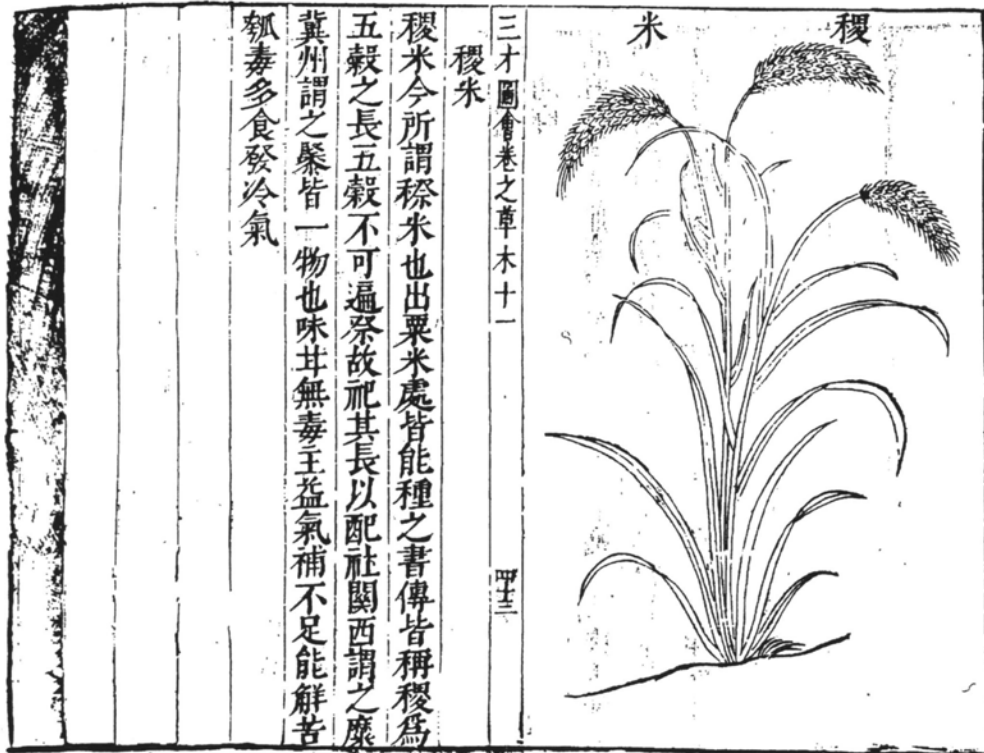 稷米
三才圖會卷之草木十一
四十三
稷米
稷米今所謂穄米也出粟米處皆能種之書傳皆稱稷爲
五穀之長五穀不可遍祭故祀其長以配社関西謂之糜
冀州謂之䵖皆一物也味甘無毒主益氣補不足能觧苦
瓠毒多食發冷氣